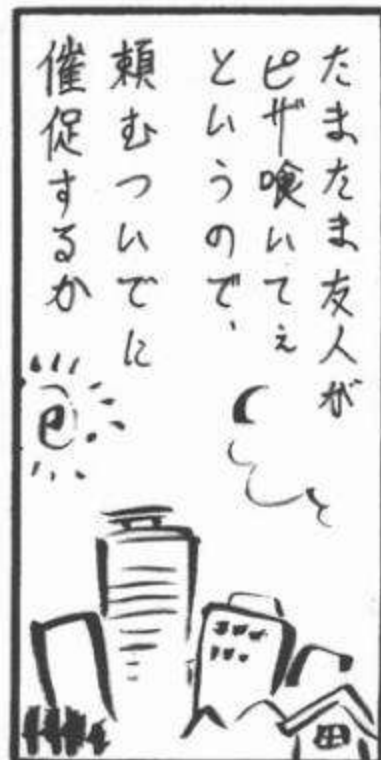 たまたま友人が
ピザ喰いてぇ
というので、
頼むついでに
催促するか